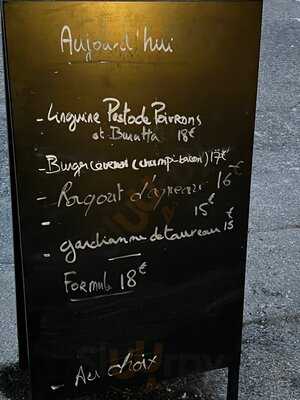 Aujourd'hui
- Linguine Pesto de Poivrons
et Buratta 18€
- Burger cévenol (champi-bacon) 17€
- Ragout d'agneau 16€
15€
- gardianne de taureau 15€
Formule 18€
- Au choix